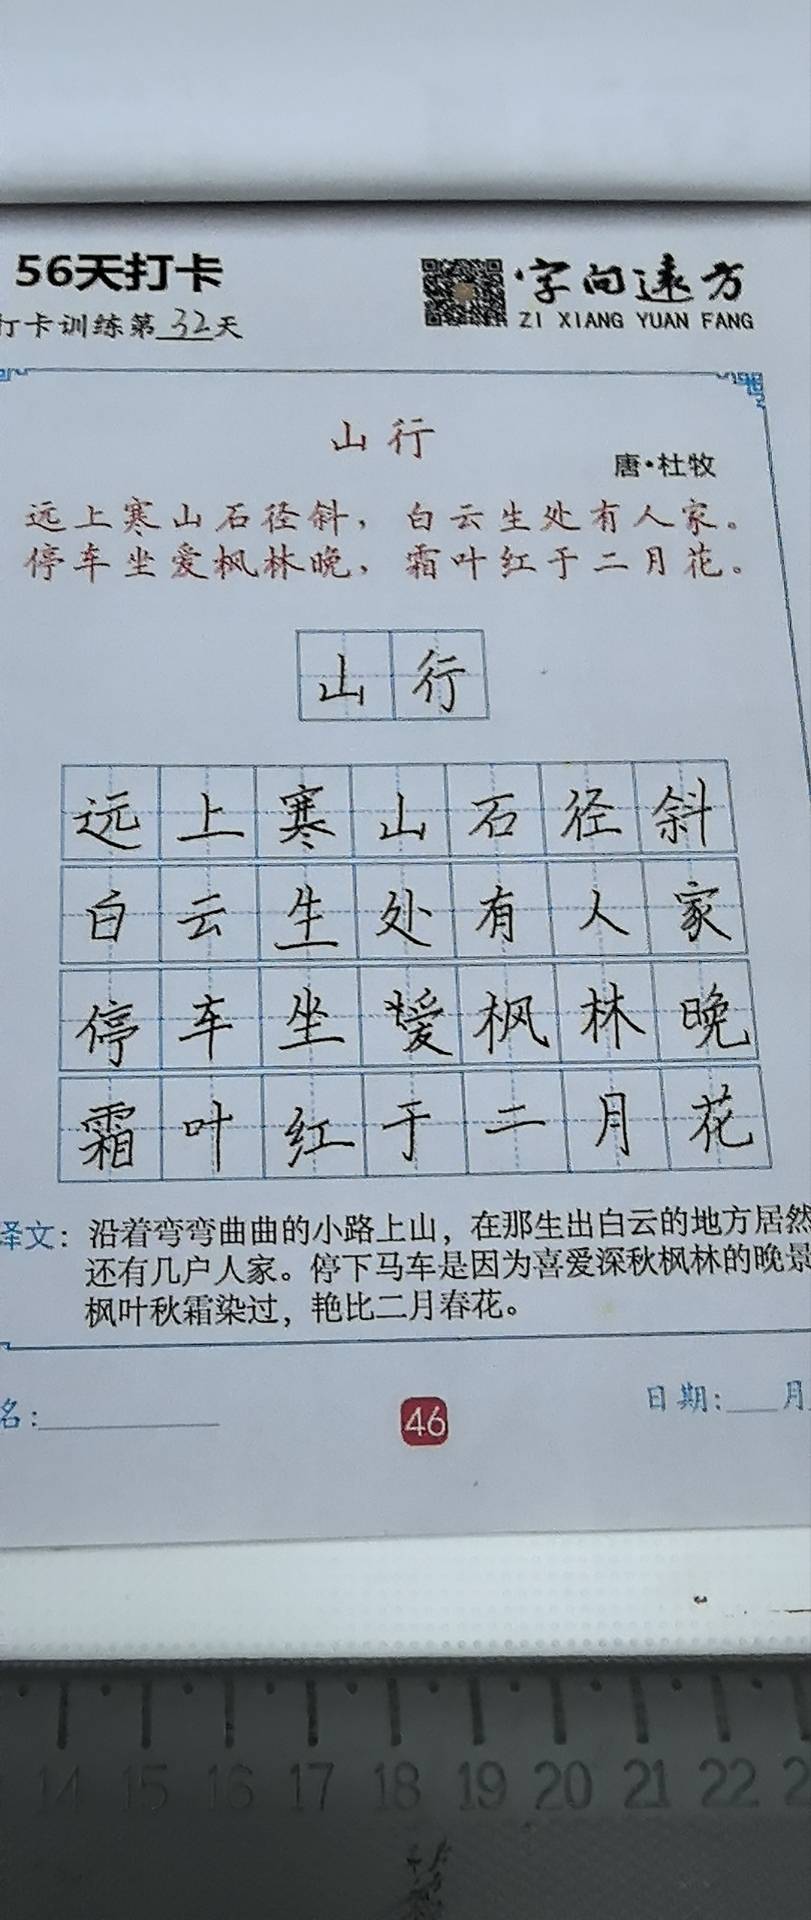 56天打卡
字向遠方
ZI XIANG YUAN FANG
打卡训练第32天
山行
唐·杜牧
远上寒山石径斜，白云生处有人家。
停车坐爱枫林晚，霜叶红于二月花。
山行
远上寒山石径斜
白云生处有人家
停车坐爱枫林晚
霜叶红于二月花
译文：沿着弯弯曲曲的小路上山，在那生出白云的地方居然
还有几户人家。停下马车是因为喜爱深秋枫林的晚景
枫叶秋霜染过，艳比二月春花。
名：
日期： 月
46
14 15 16 17 18 19 20 21 22